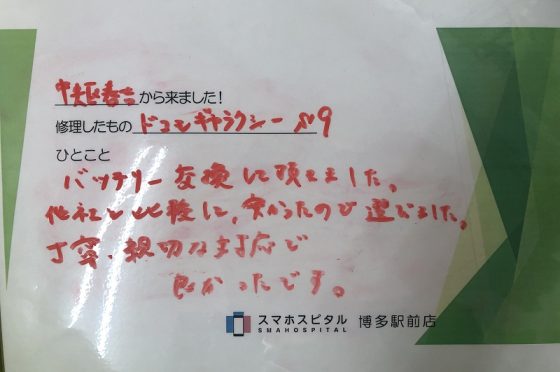 中央区春吉から来ました!
修理したもの ドコモギャラクシーS9
ひとこと
バッテリー交換して頂きました。
他社と比較して、安かったので選びました。
丁寧、親切な対応で
良かったです。
スマホスピタル 博多駅前店
SMAHOSPITAL